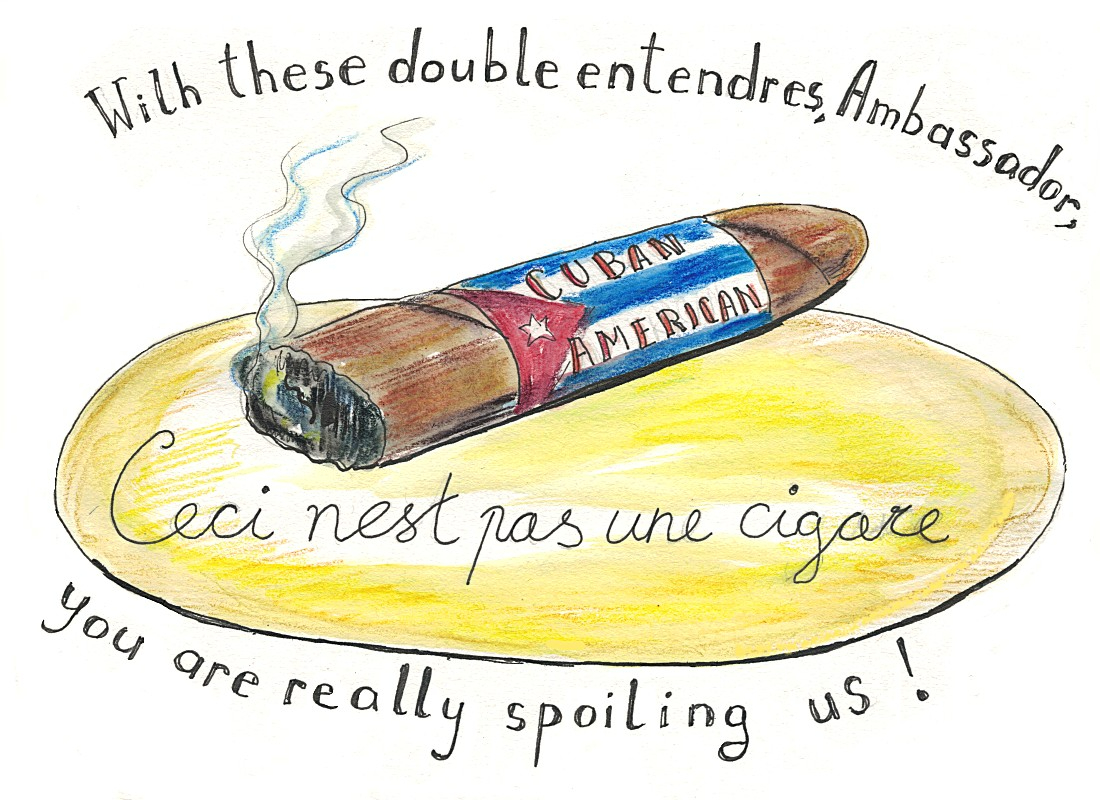 With these double entendres, Ambassador,
CUBAN
AMERICAN
Ceci nest pas une cigare
you are really spoiling us !